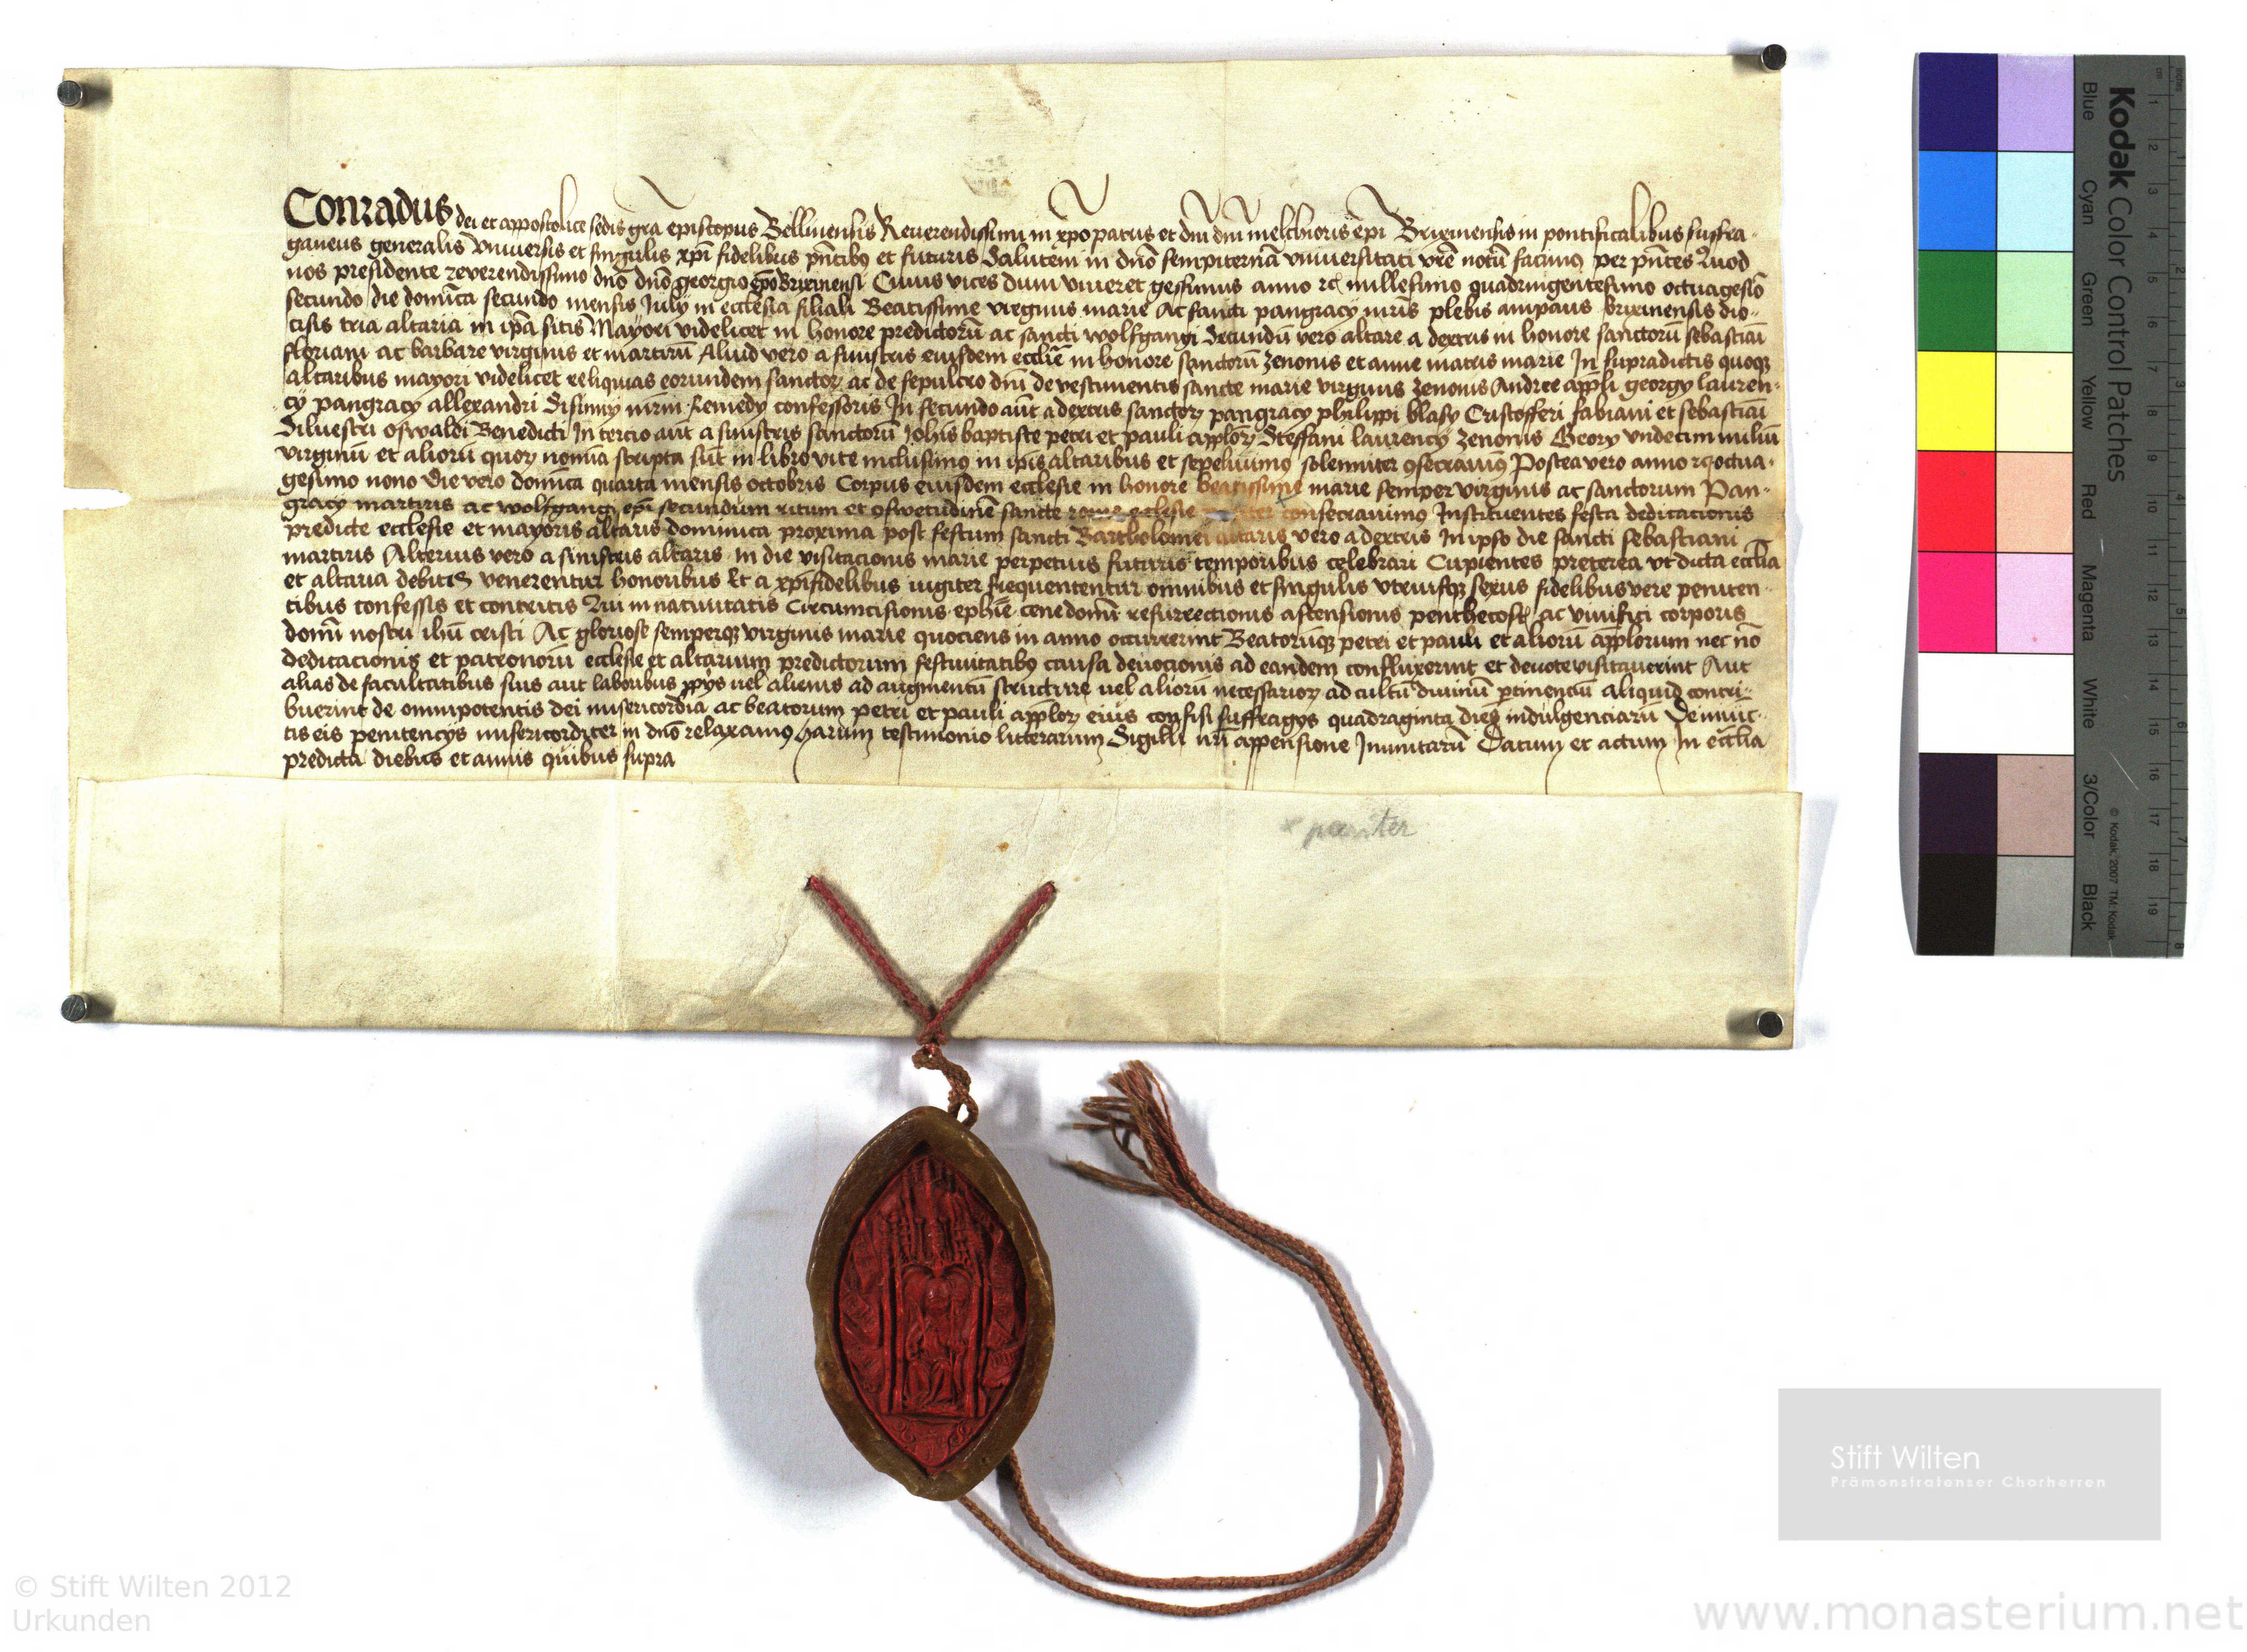 Conradus dei et appostolice sedis gra episcopus Bellinensis Reuerendissimi in xpo patris et dni dni melchioris epi Brixinensis in pontificalibus suffra-
ganeus generalis Vniuersis et singulis xpi fidelibus pntibꝯ et futuris Salutem in dno sempiternā vniuersitati vrē notū facimꝯ per pntes Quod
nos presidente reuerendissimo dno dno georgio epo Brixinensi Cuius vices dum viueret gessimus anno rc millesimo quadringentesimo octuagesio
secundo die domica secundo mensis July in ecclesia filiali Beatissime virginis marie Ac sancti pangracy mris plebis ampans brixinensis dio-
cisis tria altaria in ipa sitis Mayori videlicet in honore predictorū ac sancti wolfgangi Secundū vero altare a dextris in honore sanctorū sebastiai
floriani ac barbare virginis et martirū Aliud vero a sinistris eiusdem ecclie in honore sanctorū zenonis et anne matris marie In supradictis quoqꝫ
altaribus mayori videlicet reliquias eorundem sanctoꝝ ac de sepulcro dni de vestimentis sancte marie virginis zenonis Andree appli georgy lauren-
cy pangracy allexandri Sisinny mrm Remedy confessoris In secundo aut a dextris sanctoꝝ pangracy philippi blasy Cristofferi fabiani et sebastiai
Siluestri oswaldi Benedicti In tercio aut a sinistris sanctorū Johis baptiste petri et pauli applorꝝ Steffani laurency zenonis Geory vndecim miliū
virginū et aliorū quoꝝ noina scripta sūt in libro vite inclusimꝯ in ipis altaribus et sepeliuimꝯ solenniter ꝯsecrauimꝯ Postea vero anno rc octua-
gesimo nono Die vero domica quarta mensis octobris Corpus eiusdem ecclesie in honore beatissime marie semper virginis ac sanctorum Pan-
gracy martiris ac wolfgangi epi secundum ritum et ꝯswetudinē sancte rome ecclesie consecrauimꝯ Instituentes festa dedicacionis
predicte ecclesie et mayoris altaris dominica proxima post festum sancti Bartholomei altaris vero a dextris In ipso die sancti sebastiani
martiris Alterius vero a sinistris altaris in die visitacionis marie perpetuis futuris temporibus celebrari Cupientes preterea vt dicta ecclia
et altaria debitis venerentur honoribus Et a xpifidelibus iugiter frequententur omnibus et singulis vtriusqꝫ sexus fidelibus vere peniten-
tibus confessis et contritis Qui in natiuitatis Circumcisionis ephie cene domi resurrectionis ascensionis penthecost ac viuifici corporis
domi nostri ihu cristi Ac gloriose semperqꝫ virginis marie quociens in anno occurrerint Beatorūqꝫ petri et pauli et aliorū applorum nec no
dedicacionis et patronorū ecclesie et altarium predictorum festiuitatibꝯ causa deuocionis ad eandem confluxerint et deuote visitauerint Aut
alias de facultatibus suis aut laboribus ꝓpys uel alienis ad augmentū structure uel aliorū necessarioꝝ ad cultū diuinū ꝑtinenciū aliquid contri-
buerint de omnipotentis dei misericordia ac beatorum petri et pauli applorꝝ eius confisi suffragys quadraginta dies indulgenciarū De iniūc-
tis eis penitencys misericorditer in dno relaxamꝯ harum testimonio litterarum Sigilli nri appensione Jnmitarū Datum et actum In ecclia
predicta diebus et annis quibus supra
× pariter
Kodak Color Control Patches
Blue Cyan Green Yellow Red Magenta White 3/Color Black
© Kodak, 2007 TM: Kodak
inches
cm
1 2 3 4 5 6 7 8 9 10 11 12 13 14 15 16 17 18 19
1 2 3 4 5 6 7 8
Stift Wilten
Prämonstratenser Chorherren
© Stift Wilten 2012
Urkunden
www.monasterium.net